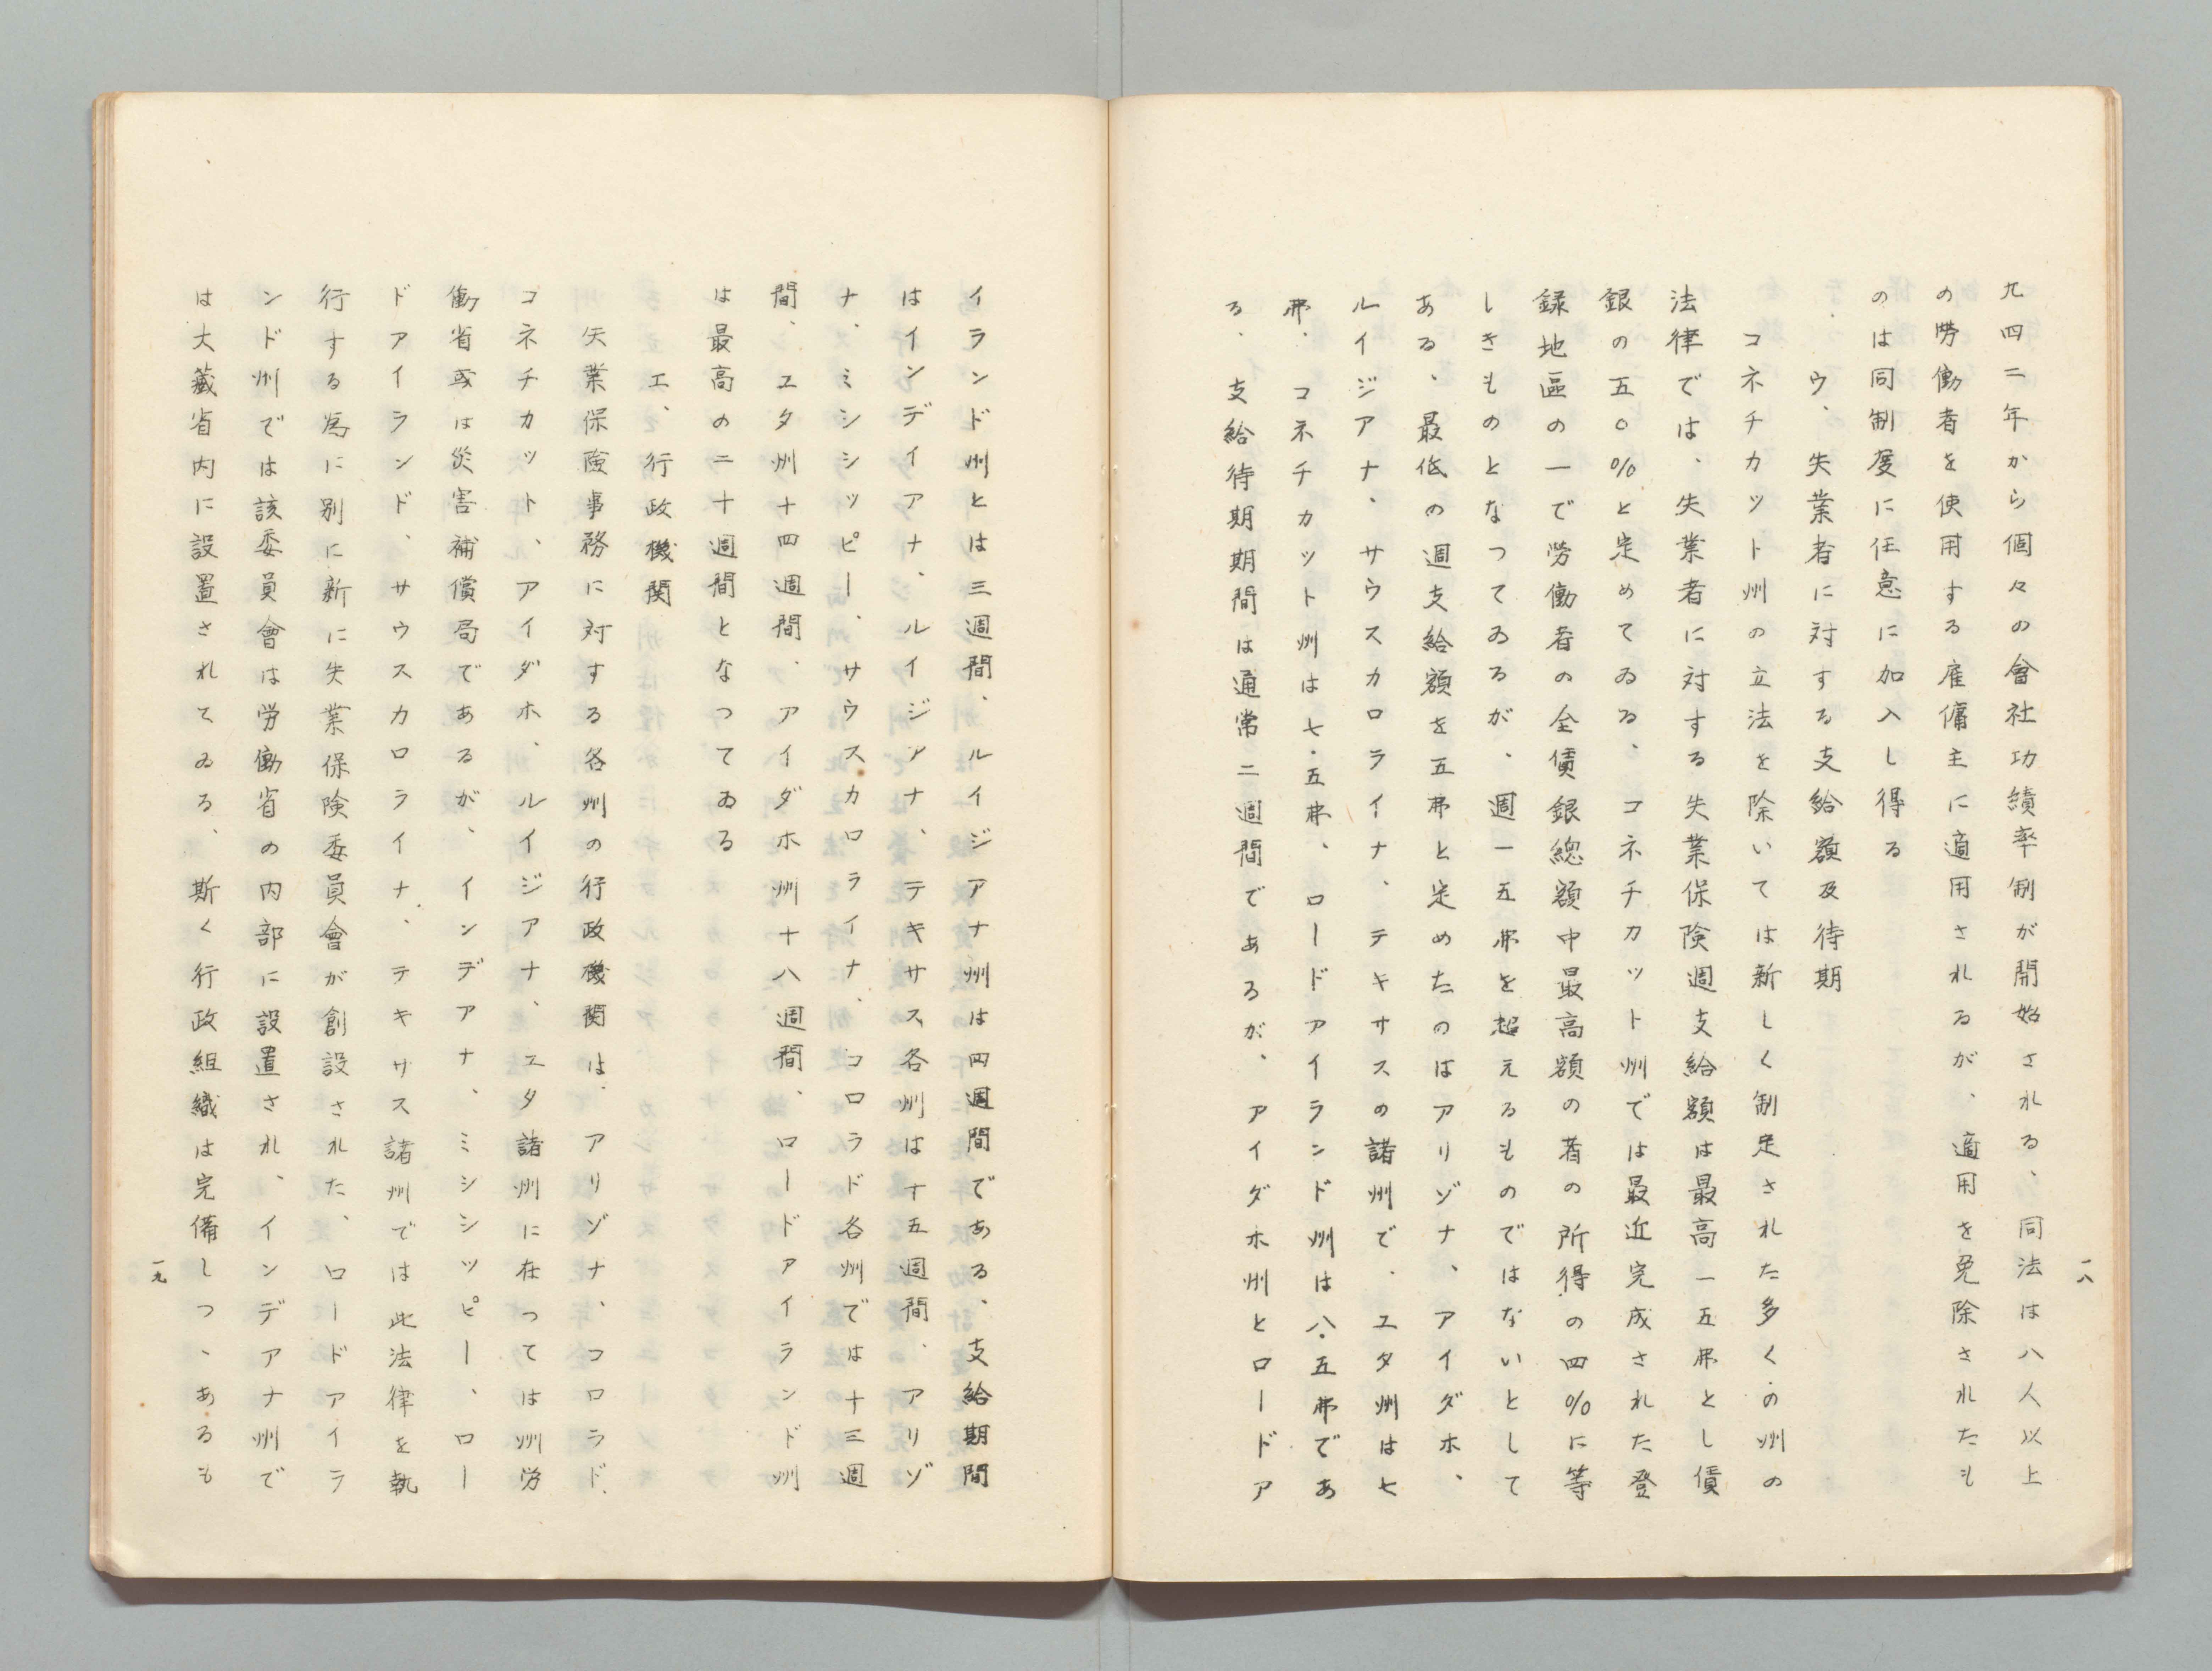 九四二年から個々の會社功績率制が開始される、同法は八人以上
の労働者を使用する雇傭主に適用されるが、適用を免除されたも
のは同制度に任意に加入し得る
ウ、失業者に対する支給額及待期
コネチカット州の立法を除いては新しく制定された多くの州の
法律では、失業者に対する失業保険週支給額は最高一五弗とし賃
銀の五〇%と定めてゐる、コネチカット州では最近完成された登
録地區の一で労働者の全賃銀總額中最高額の者の所得の四%に等
しきものとなつてゐるが、週一五弗を超えるものではないとして
ある、最低の週支給額を五弗と定めたのはアリゾナ、アイダホ、
ルイジアナ、サウスカロライナ、テキサスの諸州で、ユタ州は七
弗、コネチカット州は七・五弗、ロードアイランド州は八・五弗であ
る、支給待期期間は通常二週間であるが、アイダホ州とロードア
一八
イランド州とは三週間、ルイジアナ州は四週間である、支給期間
はインデイアナ、ルイジアナ、テキサス各州は十五週間、アリゾ
ナ、ミシシッピー、サウスカロライナ、コロラド各州では十三週
間、ユタ州十四週間、アイダホ州十八週間、ロードアイランド州
は最高の二十週間となつてゐる
エ、行政機関
失業保険事務に対する各州の行政機関は、アリゾナ、コロラド、
コネチカット、アイダホ、ルイジアナ、ユタ諸州に在つては州労
働省或は災害補償局であるが、インデアナ、ミシシッピー、ロー
ドアイランド、サウスカロライナ、テキサス諸州では此法律を執
行する為に別に新に失業保険委員會が創設された、ロードアイラ
ンド州では該委員會は労働省の内部に設置され、インデアナ州で
は大蔵省内に設置されてゐる、斯く行政組織は完備しつゝあるも
一九